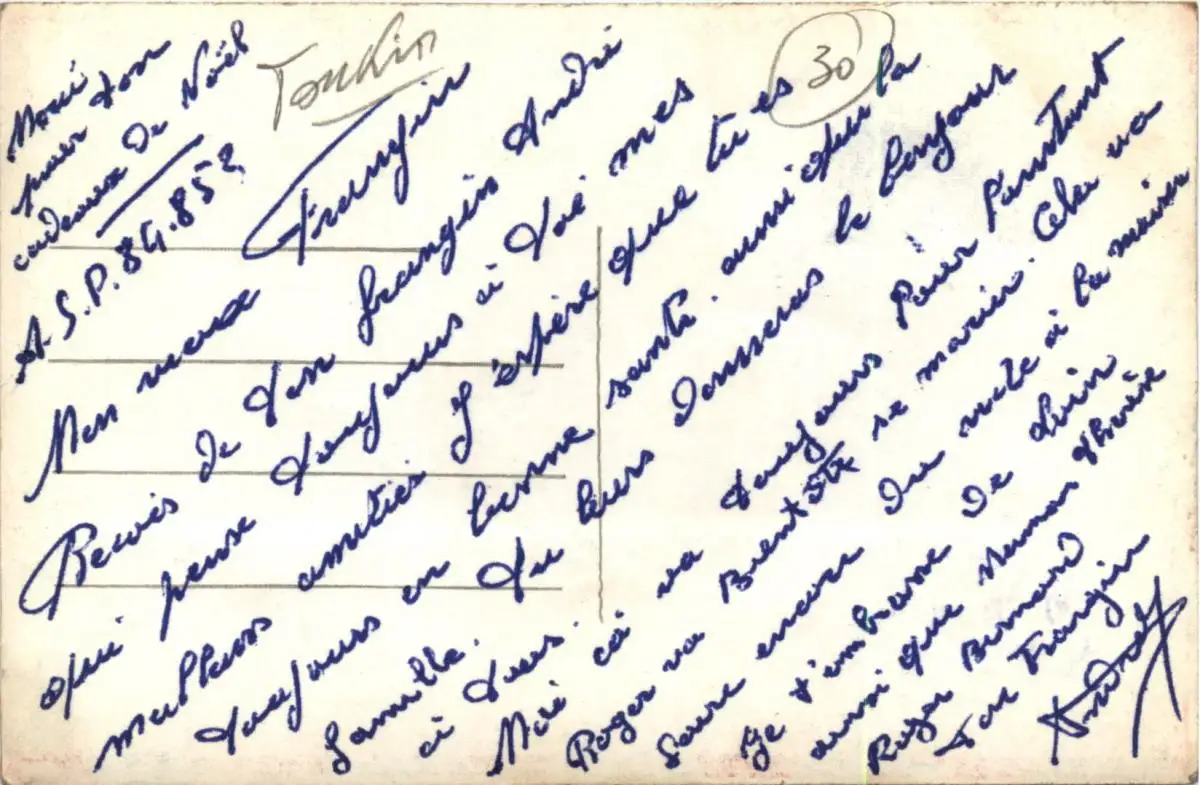 Tonkin
30
Merci
pour ton
cadeaux de Noël
A.S.P. 84.853
Mon vieux Frangin
Recois de ton frangin André
qui pense toujours à toi mes
meilleurs amitiés J'éspère que tu es
toujours en bonne santé. aussi que la
famille. Tu leurs donneras le bonjour
à tous.
Moi ca va toujours Pour l'instant
Roger va Bientôt se marier. Cela va
faire encore du vide à la maison
Je t'embrasse De Loin
aussi que Maman Thérèse
Roger Bernard
Ton Frangin
André